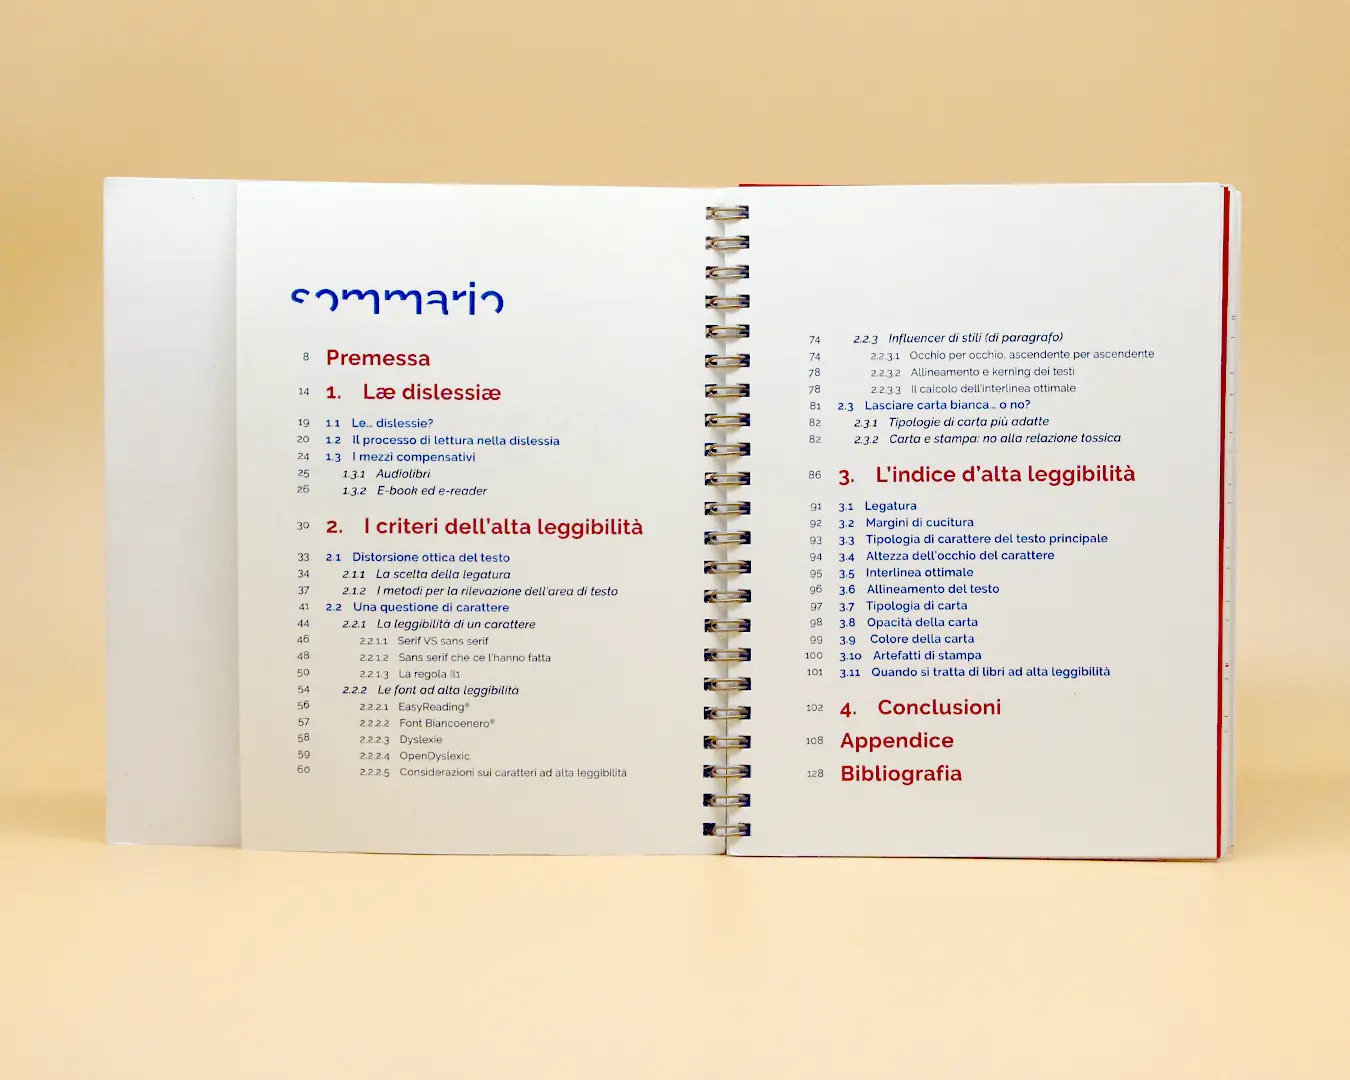 sommario
8 Premessa
14 1. Læ dislessiæ
19 1.1 Le... dislessie?
20 1.2 Il processo di lettura nella dislessia
24 1.3 I mezzi compensativi
25 1.3.1 Audiolibri
26 1.3.2 E-book ed e-reader
30 2. I criteri dell'alta leggibilità
33 2.1 Distorsione ottica del testo
34 2.1.1 La scelta della legatura
37 2.1.2 I metodi per la rilevazione dell'area di testo
41 2.2 Una questione di carattere
44 2.2.1 La leggibilità di un carattere
46 2.2.1.1 Serif VS sans serif
48 2.2.1.2 Sans serif che ce l'hanno fatta
50 2.2.1.3 La regola Il1
54 2.2.2 Le font ad alta leggibilità
56 2.2.2.1 EasyReading®
57 2.2.2.2 Font Biancoenero®
58 2.2.2.3 Dyslexie
59 2.2.2.4 OpenDyslexic
60 2.2.2.5 Considerazioni sui caratteri ad alta leggibilità
74 2.2.3 Influencer di stili (di paragrafo)
74 2.2.3.1 Occhio per occhio, ascendente per ascendente
78 2.2.3.2 Allineamento e kerning dei testi
78 2.2.3.3 Il calcolo dell'interlinea ottimale
81 2.3 Lasciare carta bianca... o no?
82 2.3.1 Tipologie di carta più adatte
82 2.3.2 Carta e stampa: no alla relazione tossica
86 3. L'indice d'alta leggibilità
91 3.1 Legatura
92 3.2 Margini di cucitura
93 3.3 Tipologia di carattere del testo principale
94 3.4 Altezza dell'occhio del carattere
95 3.5 Interlinea ottimale
96 3.6 Allineamento del testo
97 3.7 Tipologia di carta
98 3.8 Opacità della carta
99 3.9 Colore della carta
100 3.10 Artefatti di stampa
101 3.11 Quando si tratta di libri ad alta leggibilità
102 4. Conclusioni
108 Appendice
128 Bibliografia